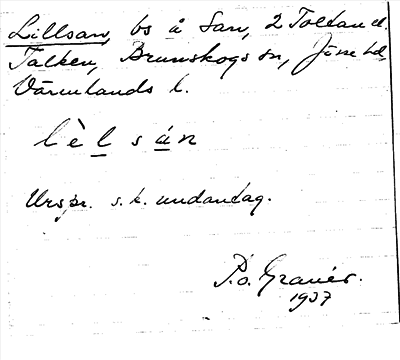 Lillsan, bs å San, 2 Toltan el.
Talken, Brunskogs sn, Jösse hd,
Värmlands l.
lèl sán
Urspr. s.k. undantag.
P.o. Graner.
1937